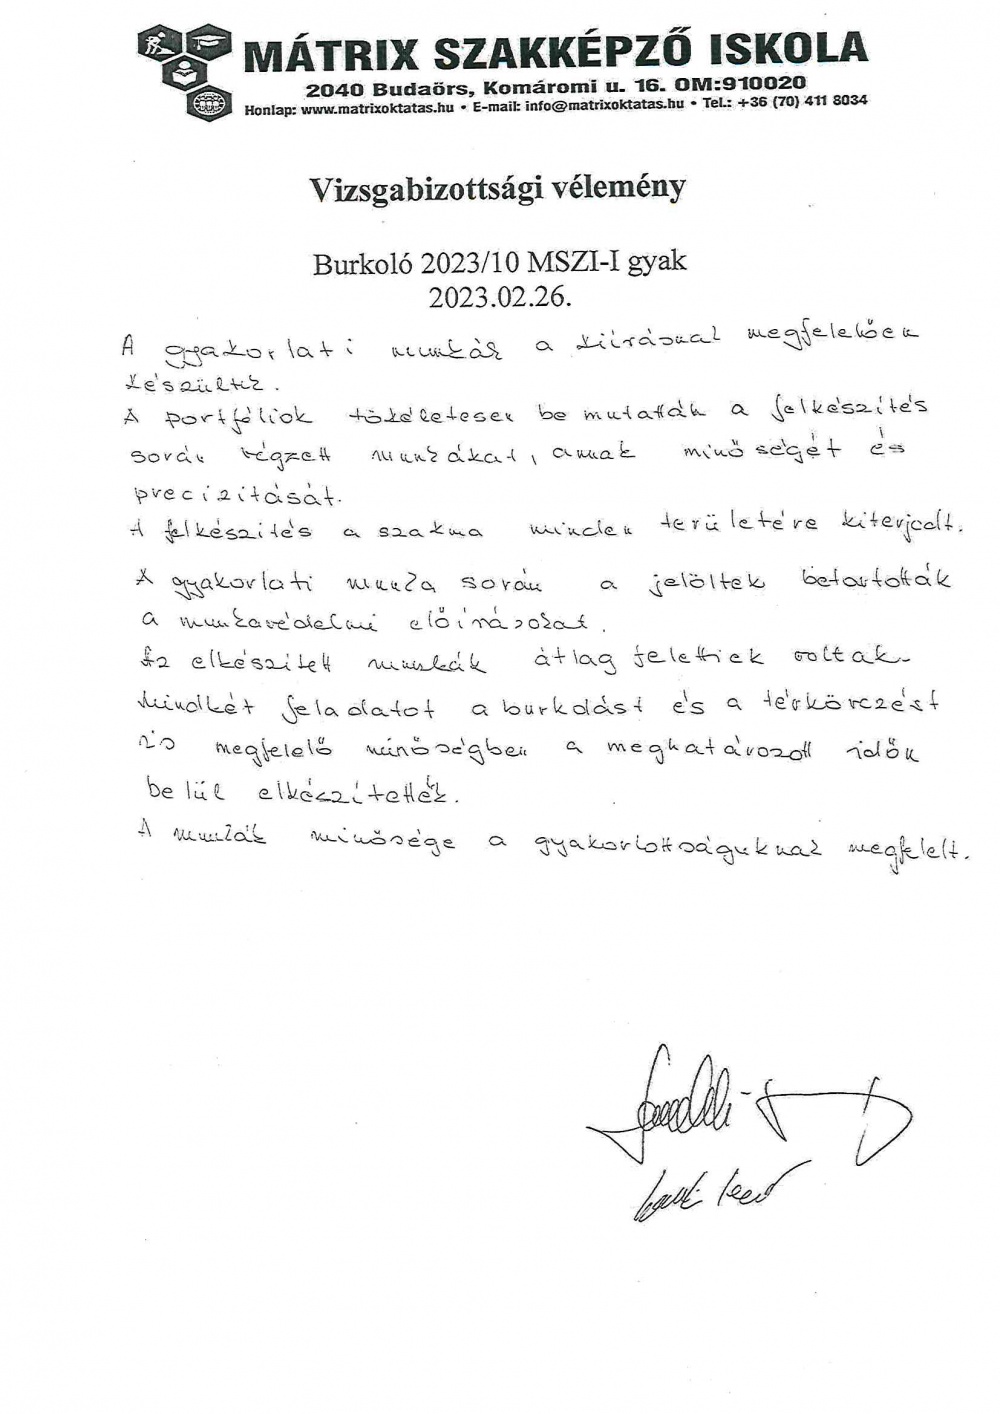 MÁTRIX SZAKKÉPZŐ ISKOLA
2040 Budaörs, Komáromi u. 16. OM:910020
Honlap: www.matrixoktatas.hu • E-mail: info@matrixoktatas.hu • Tel.: +36 (70) 411 8034
Vizsgabizottsági vélemény
Burkoló 2023/10 MSZI-I gyak
2023.02.26.
A gyakorlati munkák a kiírásnak megfelelően
készültek.
A portfóliok tökéletesen be mutatták a felkészítés
során végzett munkákat, annak minőségét és
precizitását.
A felkészítés a szakma minden területére kiterjedt.
A gyakorlati munka során a jelöltek betartották
a munkavédelmi előírásokat.
Az elkészített munkák átlag felettiek voltak.
Mindkét feladatot a burkolást és a térkövezést
is megfelelő minőségben a meghatározott időn
belül elkészítették.
A munkák minősége a gyakorlottságuknak megfelelt.